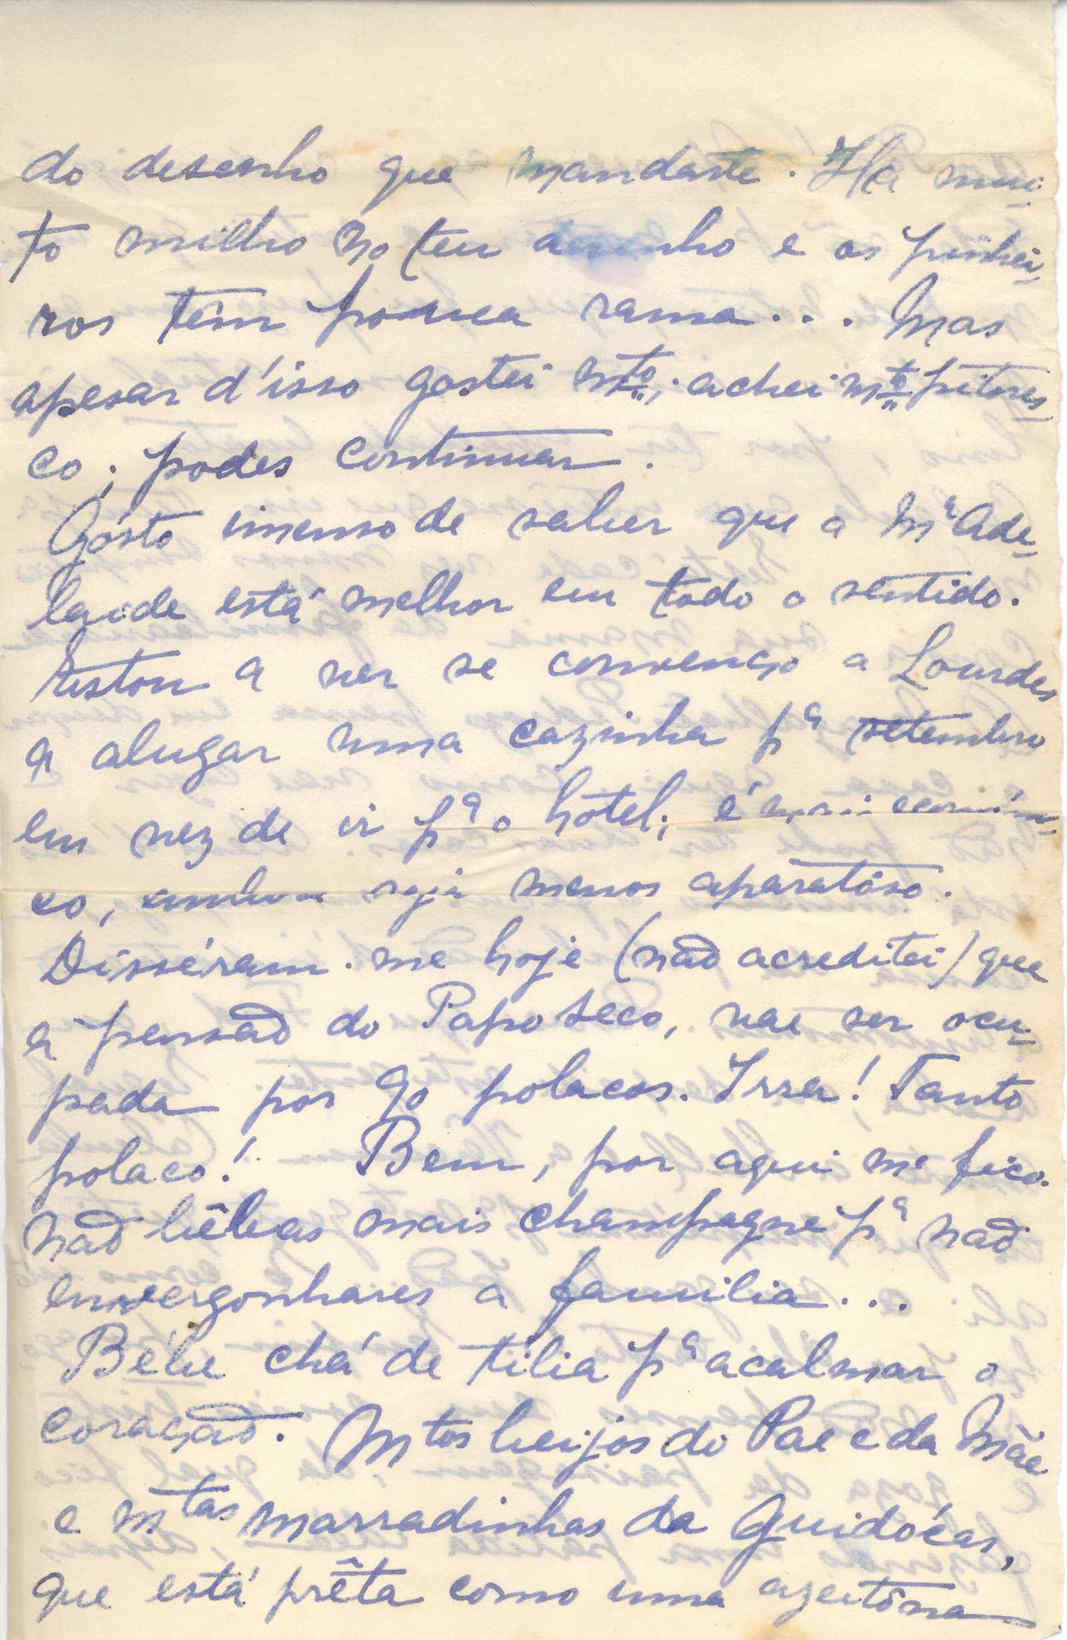 do desenho que mandaste. Ha mui-
to milho no teu desenho e os pinhei-
ros têm pouca rama... Mas
apesar d'isso gostei mto; achei mto pitores-
co; podes continuar.
Gósto imenso de saber que a Mª Ade-
laide está melhor em todo o sentido.
Estou a ver se convenço a Lourdes
a alugar uma cazinha pª setembro
em vez de ir pª o hotel; é mais económi-
co, embora seja menos aparatôso.
Disséram-me hoje (não acreditei) que
a pensão do Papo Seco, vae ser ocu-
pada por 90 polacos. Irra! Tanto
polaco! Bem, por aqui me fico.
Não bêbas mais champagne pª não
envergonhares a familia...
Bébe chá de tilia pª acalmar o
coração. Mtos beijos do Pae e da Mãe
e mtas marradinhas da Guidócas,
que está prêta como uma azeitôna